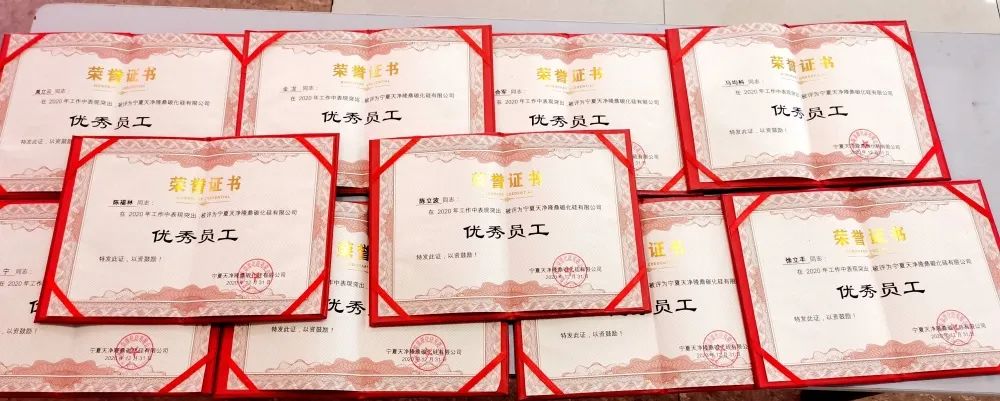 荣誉证书
吴立云 同志：
在 2020 年工作中表现突出，被评为宁夏天净隆鼎碳化硅有限公司
优秀员工
特发此证，以资鼓励！
荣誉证书
金龙 同志：
在 2020 年工作中表现突出，被评为宁夏天净隆鼎碳化硅有限公司
优秀员工
荣誉证书
军 同志：
在 2020 年工作中表现突出，被评为宁夏天净隆鼎碳化硅有限公司
优秀员工
荣誉证书
同志：
在 2020 年工作中表现突出，被评为宁夏天净隆鼎碳化硅有限公司
优秀员工
特发此证，以资鼓励！
宁夏天净隆鼎碳化硅有限公司
2020 年 12 月 31 日
荣誉证书
陈福林 同志：
在 2020 年工作中表现突出，被评为宁夏天净隆鼎碳化硅有限公司
优秀员工
特发此证，以资鼓励！
宁夏天净隆鼎碳化硅有限公司
2020 年 12 月 31 日
荣誉证书
陈立波 同志：
在 2020 年工作中表现突出，被评为宁夏天净隆鼎碳化硅有限公司
优秀员工
特发此证，以资鼓励！
宁夏天净隆鼎碳化硅有限公司
2020 年 12 月 31 日
宁 同志：
在 2
特发此证，以资鼓励！
宁夏天净隆鼎碳化硅有限公司
2020 年 12 月 31 日
特发此证，以资鼓励！
宁夏天净隆鼎碳化硅有限公司
2020 年 12 月 31 日
证书
碳化硅有限公司
特发此证，以资鼓励！
宁夏天净隆鼎碳化硅有限公司
2020 年 12 月 31 日
荣誉证书
徐立丰 同志：
在 2020 年工作中表现突出，被评为宁夏天净隆鼎碳化硅有限公司
优秀员工
特发此证，以资鼓励！
宁夏天净隆鼎碳化硅有限公司
2020 年 12 月 31 日